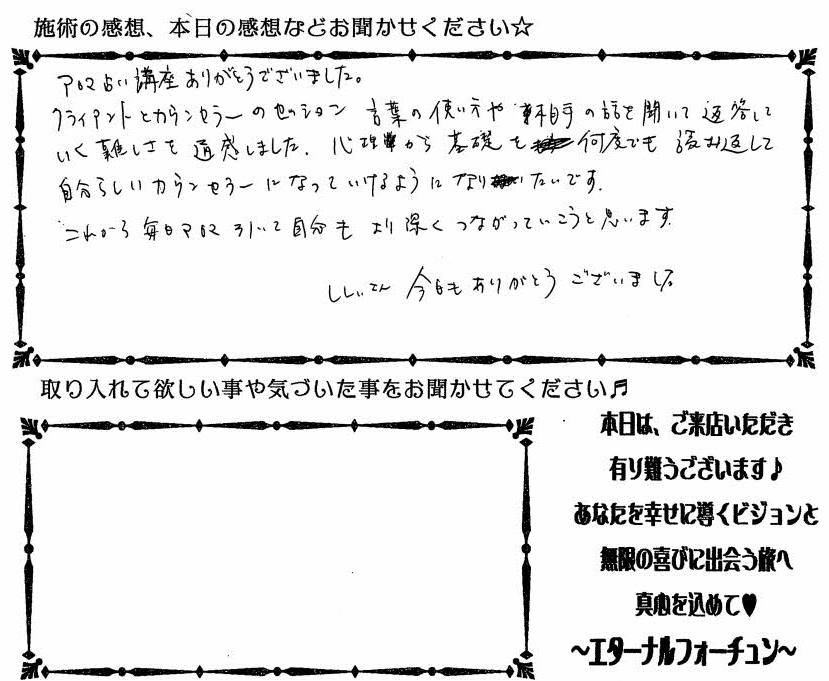 施術の感想、本日の感想などお聞かせください☆
アロマ占い講座ありがとうございました。
クライアントとカウンセラーのセッション 言葉の使い方や 相手の話を聞いて返答して
いく難しさを痛感しました。心理 から 基礎を 何度でも 読み返して
自分らしいカウンセラーになっていけるように なり たいです。
これから毎日アロマ引いて自分もより深くつながっていこうと思います。
今日もありがとうございました。
取り入れて欲しい事や気づいた事をお聞かせてください♬
本日は、ご来店いただき
有り難うございます♪
あなたを幸せに導くビジョンと
無限の喜びに出会う旅へ
真心を込めて♥
~エターナルフォーチュン~